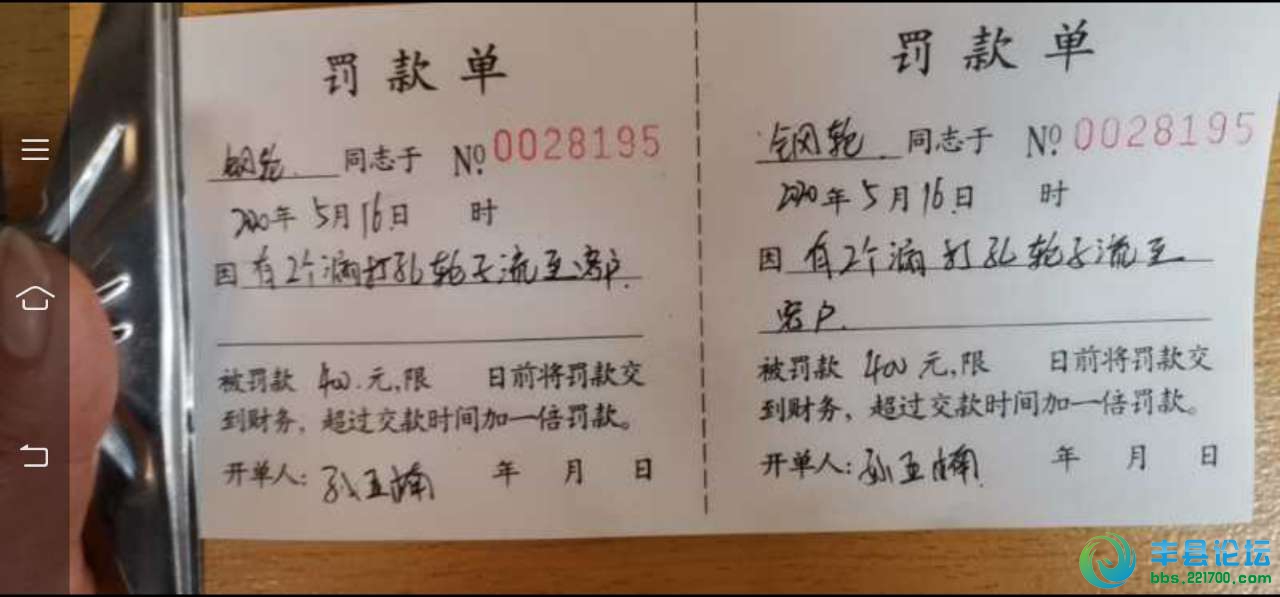 罚款单
钢轮 同志于 № 0028195
2020年 5月16日 时
因 有2个漏打孔轮子流至客户.
被罚款 400.元,限 日前将罚款交
到财务，超过交款时间加一倍罚款。
开单人: 孙亚楠 年 月 日
罚款单
钢轮. 同志于 № 0028195
2020年5月16日 时
因 有2个漏打孔轮子流至
客户.
被罚款 400元,限 日前将罚款交
到财务，超过交款时间加一倍罚款。
开单人: 孙亚楠 年 月 日
丰县论坛
bbs.221700.com